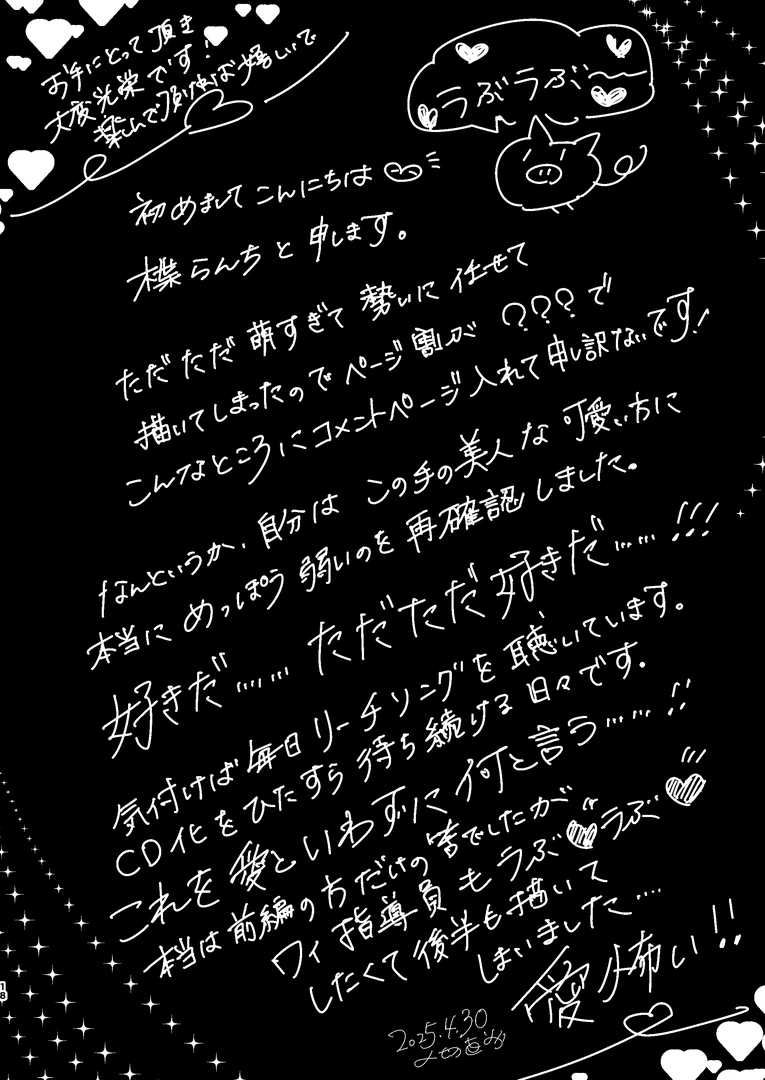 お手にとって頂き
大変光栄です!
楽しんで頂ければ嬉しいで
うぶうぶ〜
初めましてこんにちは
らんちと申します。
ただただ萌すぎて勢いに任せて
描いてしまったのでページ割が???で
こんなところにコメントページ入れて申し訳ないです!
なんというか、自分はこの手の美人な可愛い方に
本当にめっぽう弱いのを再確認しました。
好きだ……ただただ好きだ……!!!
気付けば毎日リーチソングを聴いています。
CD化をひたすら待ち続ける日々です。
これを愛といわずに何と言う……!!
本当は前編の方だけの筈でしたが
ワィ指導員もうぶ♥うぶ♥
したくて後半も描いて
しまいました….
愛怖い!!
2025.4.30
18